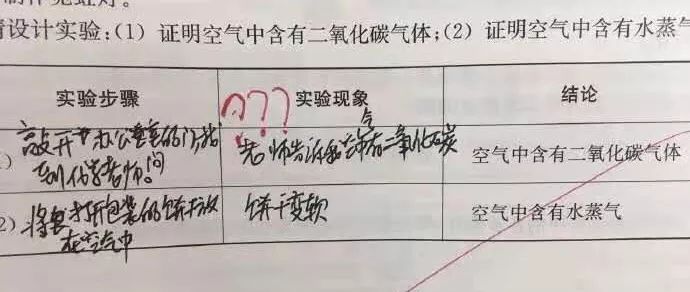 请设计实验:(1) 证明空气中含有二氧化碳气体;(2) 证明空气中含有水蒸气
实验步骤 实验现象 结论
???
敲开办公室的门找到化学老师问
老师告诉我空气有二氧化碳
空气中含有二氧化碳气体
2) 将打开包装的饼干放在空气中
饼干变软
空气中含有水蒸气